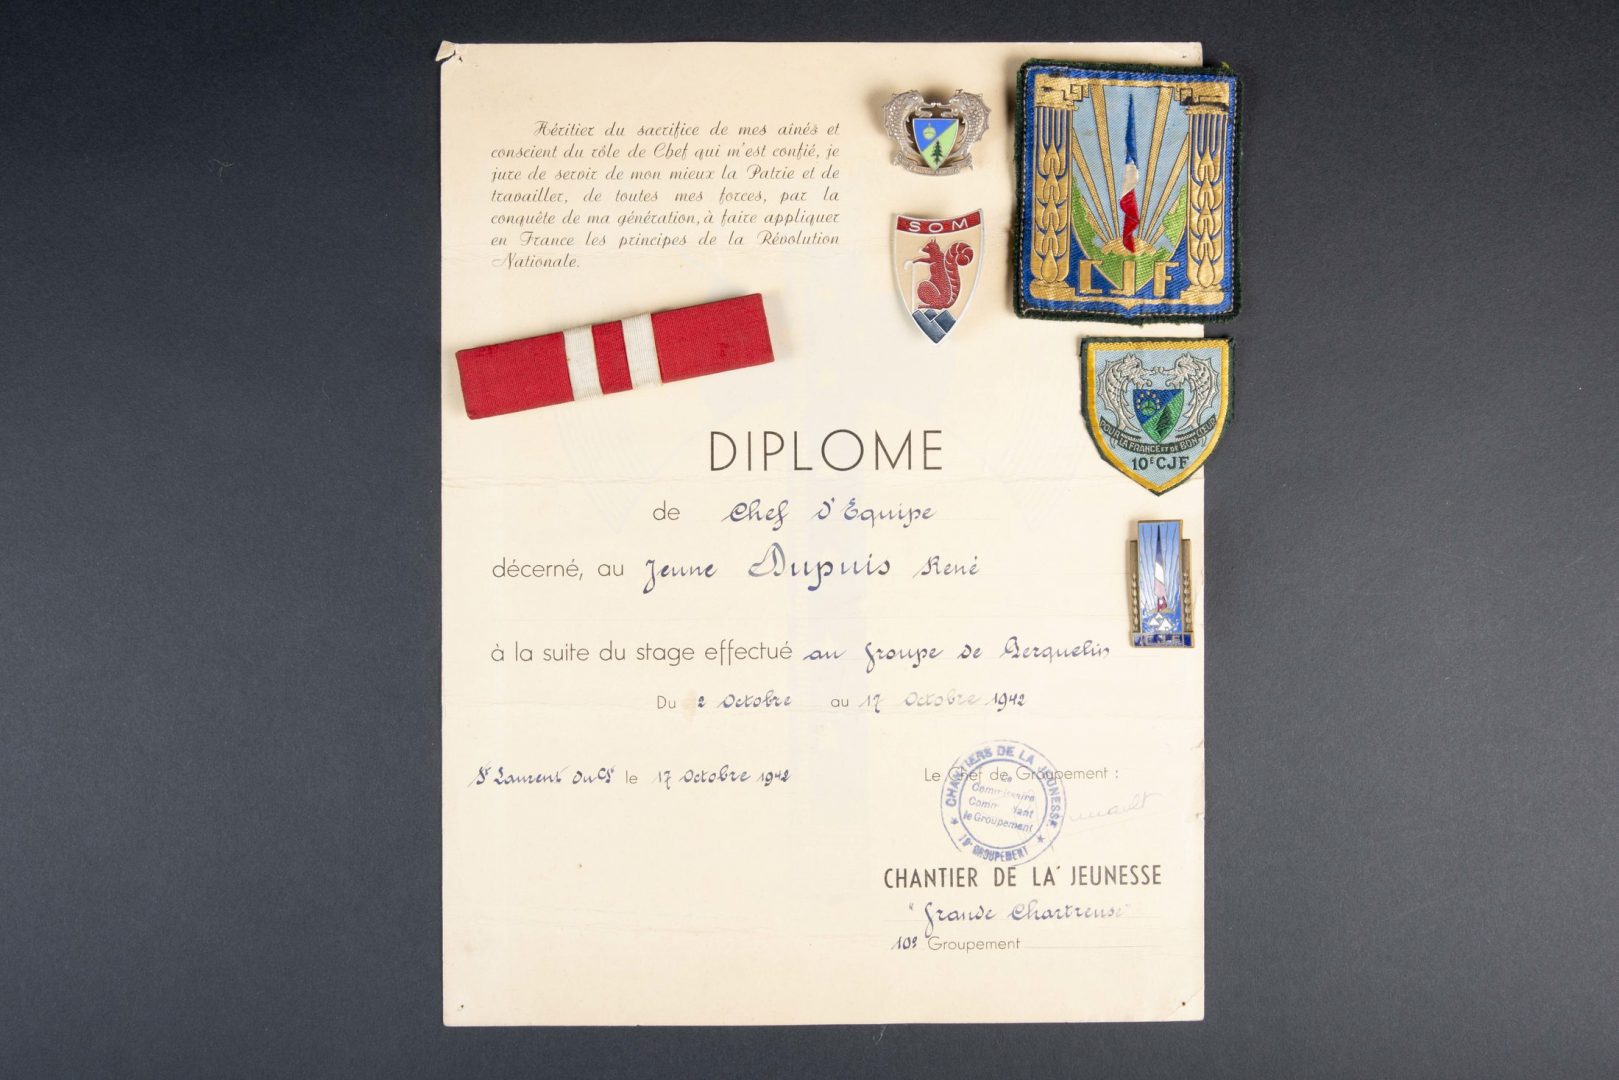 Héritier du sacrifice de mes aînés et
conscient du rôle de Chef qui m'est confié, je
jure de servir de mon mieux la Patrie et de
travailler, de toutes mes forces, par la
conquête de ma génération, à faire appliquer
en France les principes de la Révolution
Nationale.
SOM
CJF
POUR LA FRANCE ET DE BON CŒUR
10E CJF
DIPLOME
de Chef d'Equipe
décerné, au Jeune Dupuis René
à la suite du stage effectué au Groupe de Berquelin
Du 2 Octobre au 17 Octobre 1942
St Laurent du Pt le 17 Octobre 1942
Le Chef de Groupement :
CHANTIERS DE LA JEUNESSE
Le
Commissaire
Commandant
le Groupement
10e GROUPEMENT
CHANTIER DE LA JEUNESSE
"Grande Chartreuse"
10e Groupement